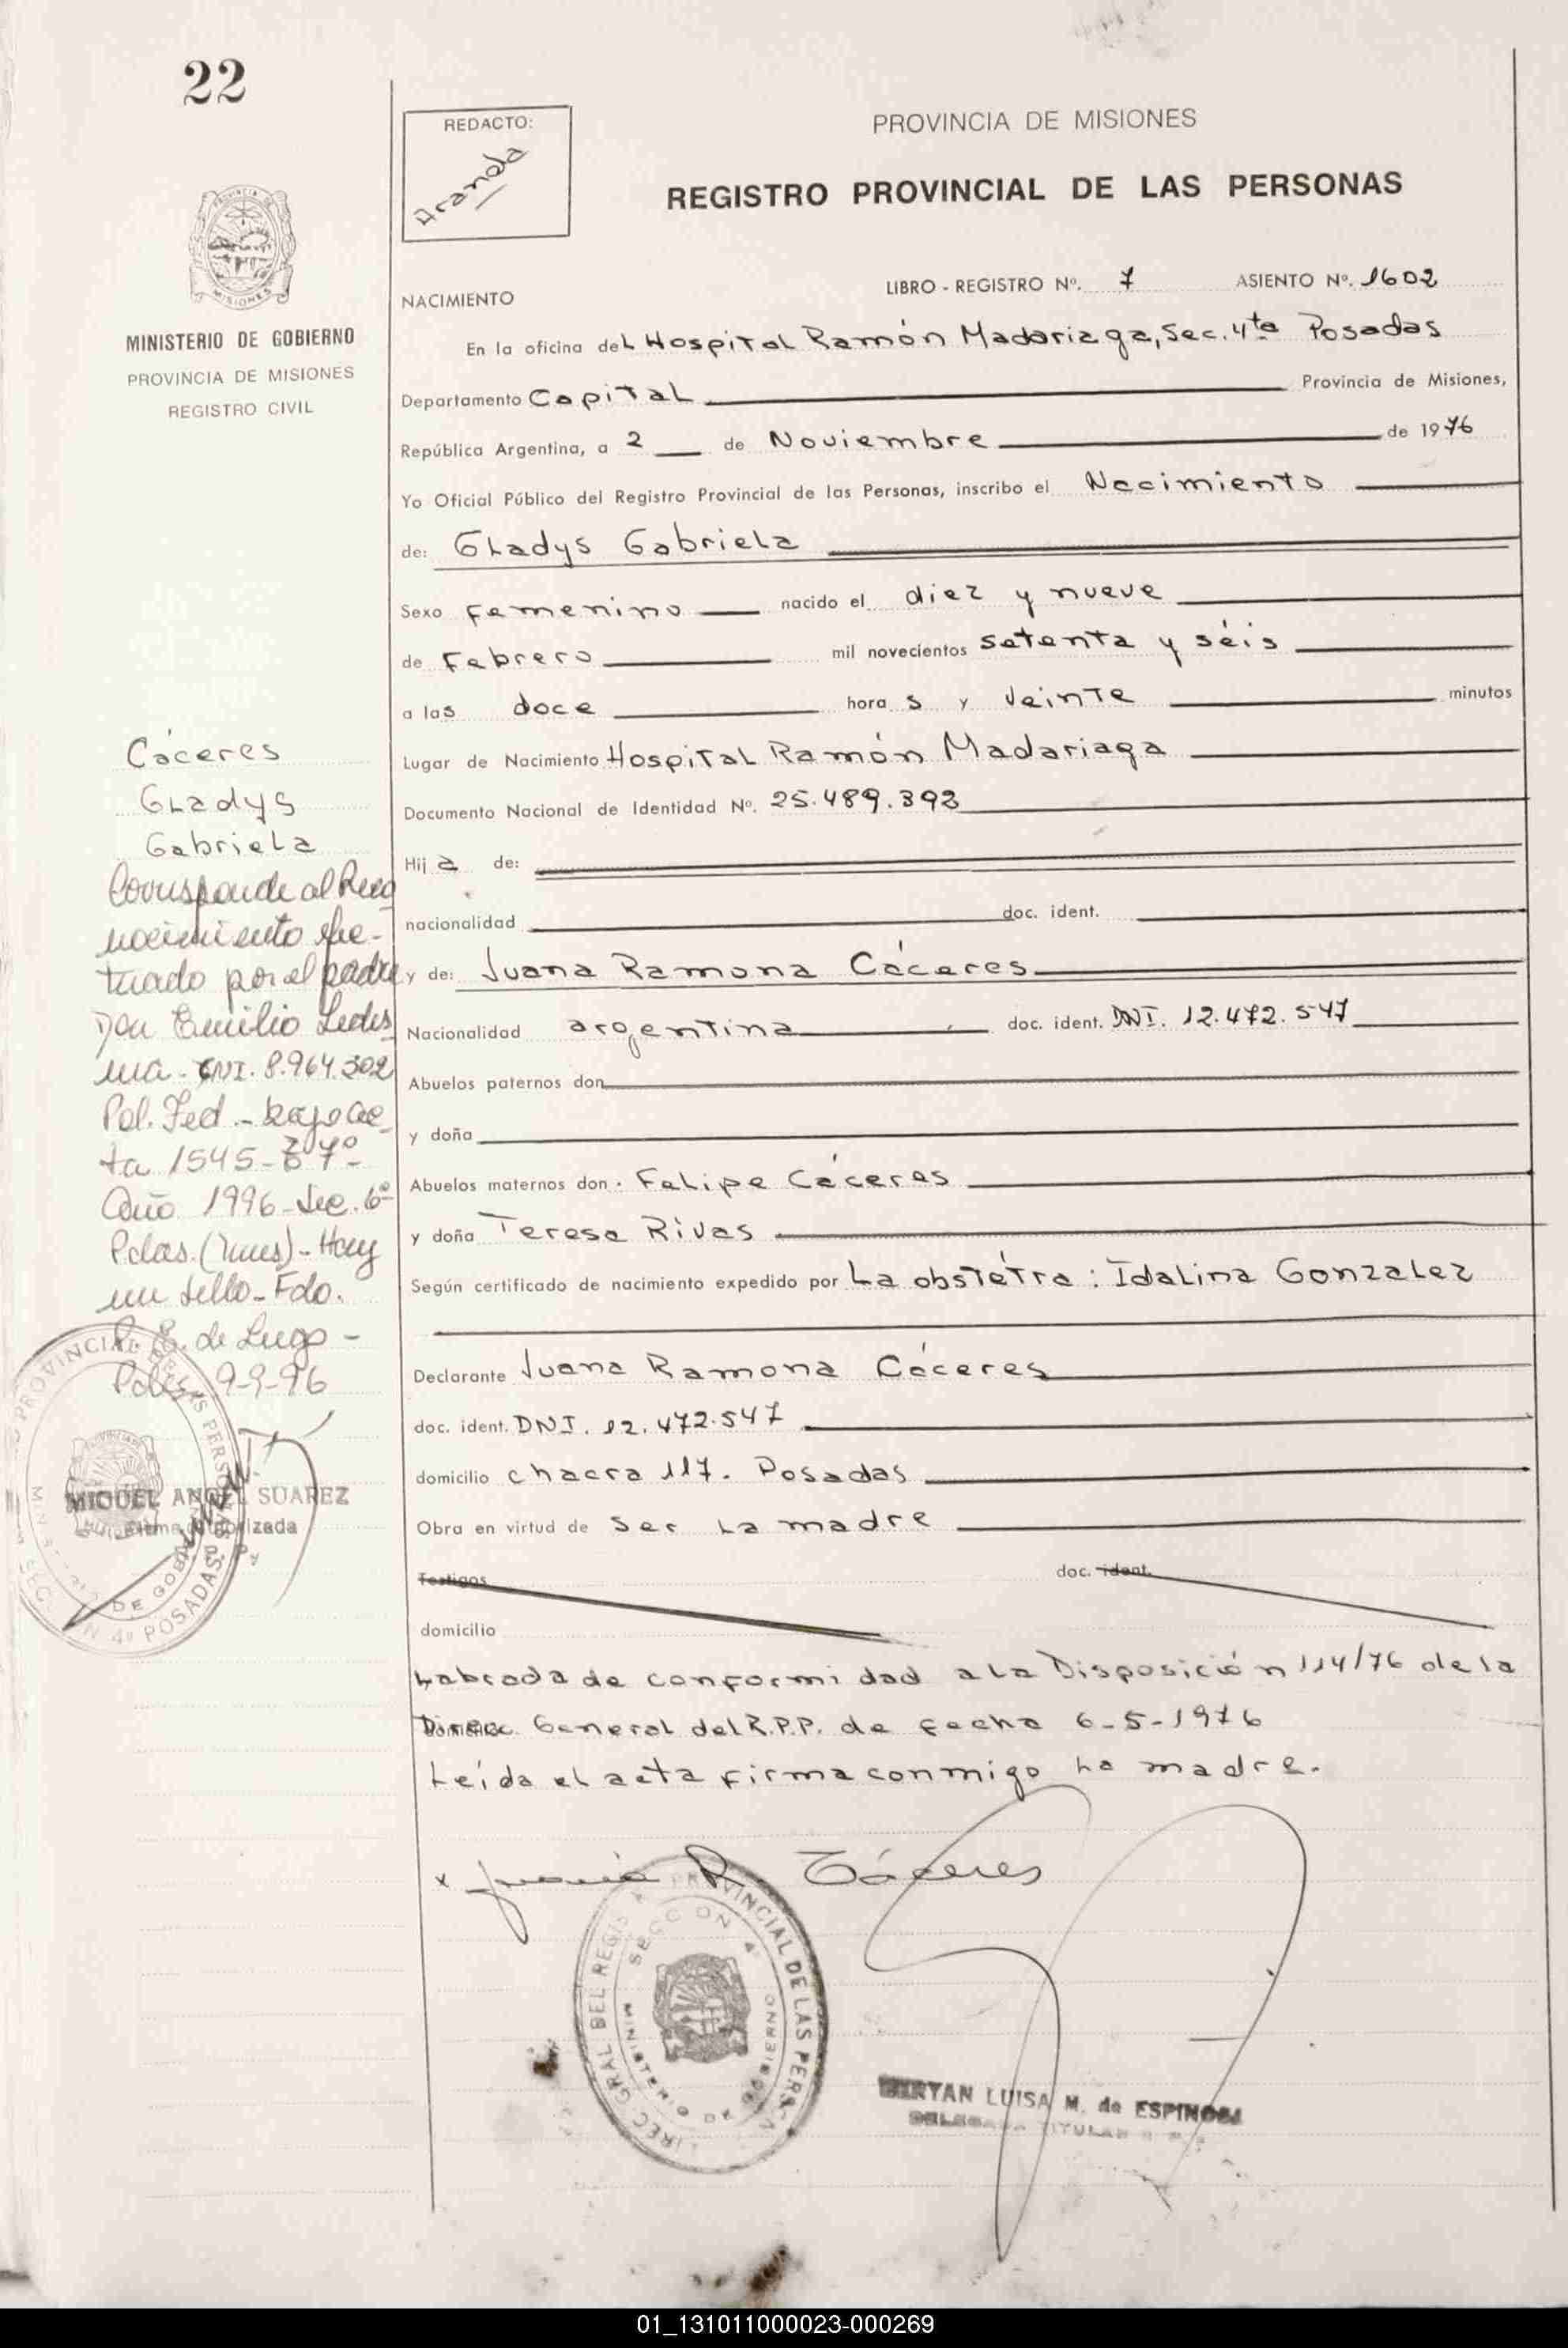 22
REDACTO:
Aranda
PROVINCIA DE MISIONES
REGISTRO PROVINCIAL DE LAS PERSONAS
MISIONES
MINISTERIO DE GOBIERNO
PROVINCIA DE MISIONES
REGISTRO CIVIL
LIBRO - REGISTRO Nº. 7 ASIENTO Nº. 1602
NACIMIENTO
En la oficina del Hospital Ramón Madariaga, Sec. 4ta Posadas
Departamento Capital Provincia de Misiones,
República Argentina, a 2 de Noviembre de 1976
Yo Oficial Público del Registro Provincial de las Personas, inscribo el Nacimiento
de: Gladys Gabriela
Sexo Femenino nacido el diez y nueve
de Febrero mil novecientos setenta y séis
a las doce hora s y veinte minutos
Lugar de Nacimiento Hospital Ramón Madariaga
Documento Nacional de Identidad Nº. 25.489.392
Hij a de:
nacionalidad doc. ident.
y de: Juana Ramona Cáceres
Nacionalidad argentina doc. ident. DNI. 12.472.547
Abuelos paternos don
y doña
Abuelos maternos don Felipe Cáceres
y doña Teresa Rivas
Según certificado de nacimiento expedido por La obstétra: Idalina Gonzalez
Declarante Juana Ramona Cáceres
doc. ident. DNI. 12.472.547
domicilio chacra 117. Posadas
Obra en virtud de ser la madre
Testigos doc. ident.
domicilio
Labrada de conformidad a la Disposición 114/76 de la
Direcc General del R.P.P. de fecha 6-5-1976
Leída el acta firma conmigo la madre.
x Juana R. Cáceres
Cáceres
Gladys
Gabriela
Corresponde al Reco
nocimiento efec-
tuado por el padre
Don Emilio Ledes
ma - DNI. 8.964.302
Pol. Fed. - bajo ac
ta 1545 - 7º -
Año 1996 - Sec. 6ª
Pdas. (Mnes) - Hay
un sello - Fdo.
E. de Lugo -
9-9-96
MIGUEL ANGEL SUAREZ
Firma Autorizada
PROVINCIAL DE LAS PERSONAS
DE GOBIERNO
SECCION 4ª POSADAS
DIREC. GRAL DEL REGISTRO PROVINCIAL DE LAS PERS.
SECCION 4ª
MINISTERIO DE GOBIERNO
LUISA M. de ESPINOSA
TITULAR
01_131011000023-000269